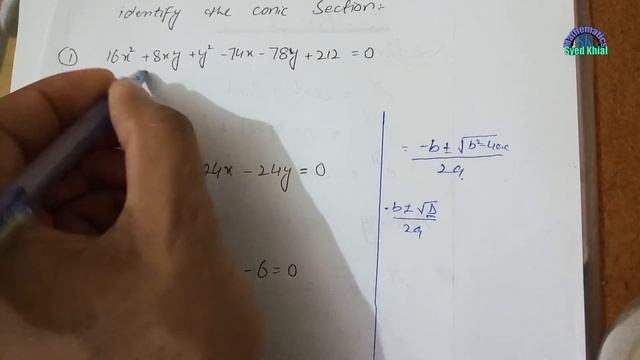 identify the conic Section:
① 16x² + 8xy + y² - 74x - 78y + 212 = 0
24x - 24y = 0
- 6 = 0
= -b ± √b²-4ac / 2a
-b ± √Δ / 2a
Mathematics
SA
Syed Khial